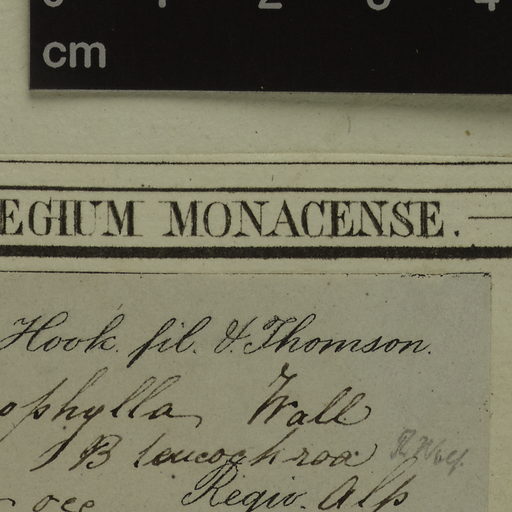 0 1 2 3 4
cm
EGIUM MONACENSE.
Hook. fil. & Thomson.
ophylla Wall
B leucochroa
occ Regio. Alp